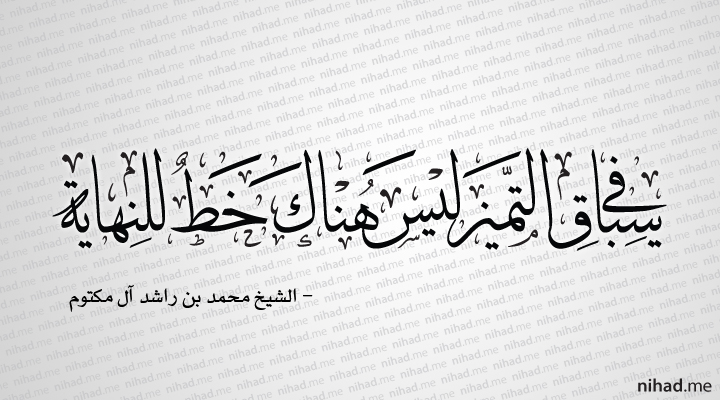 في سباق التميّز ليس هُناك خطٌ للنِهاية
– الشيخ محمد بن راشد آل مكتوم
nihad.me